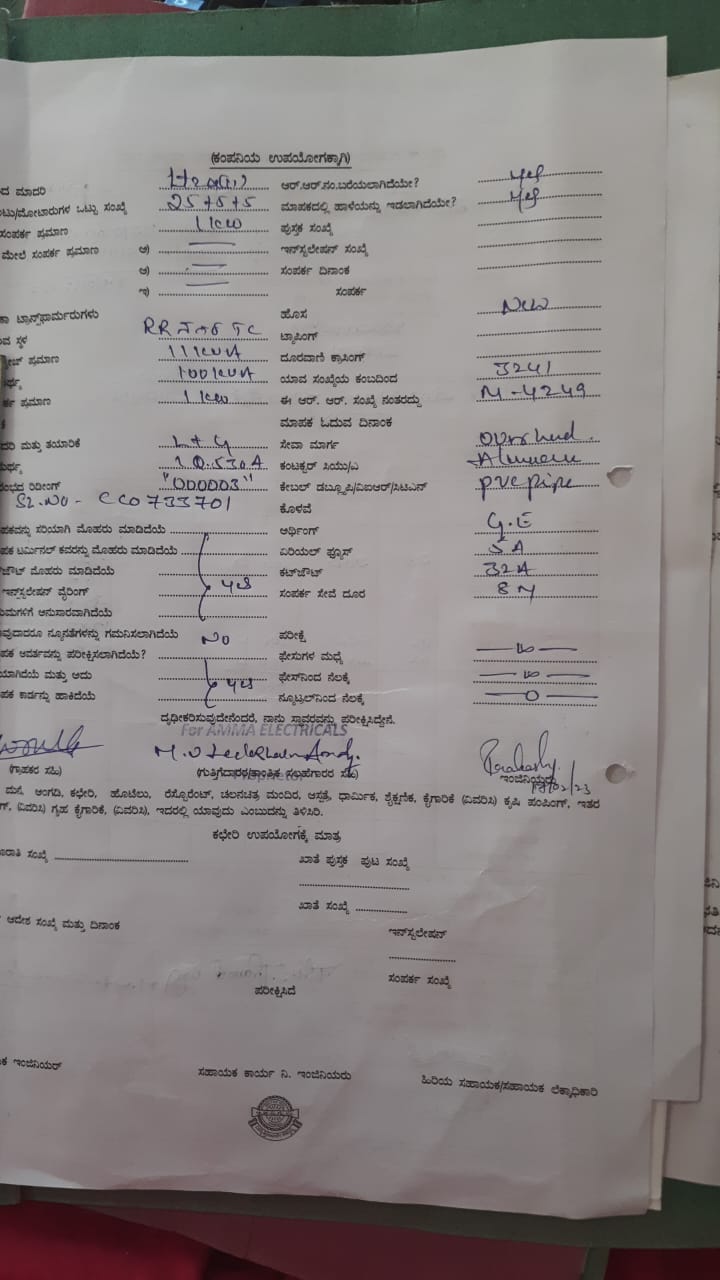 (ಕಂಪನಿಯ ಉಪಯೋಗಕ್ಕಾಗಿ)
ದ ಮಾದರಿ ಆರ್.ಆರ್.ನಂ.ಬರೆಯಲಾಗಿದೆಯೇ? Yes
ಟು/ಮೋಟಾರುಗಳ ಒಟ್ಟು ಸಂಖ್ಯೆ 25+5+5 ಮಾಪಕದಲ್ಲಿ ಹಾಳೆಯನ್ನು ಇಡಲಾಗಿದೆಯೇ? Yes
ಸಂಪರ್ಕ ಪ್ರಮಾಣ 1 KW ಪುಸ್ತಕ ಸಂಖ್ಯೆ
ಮೇಲೆ ಸಂಪರ್ಕ ಪ್ರಮಾಣ ಅ) ಇನ್‌ಸ್ಟಲೇಷನ್ ಸಂಖ್ಯೆ
ಆ) ಸಂಪರ್ಕ ದಿನಾಂಕ
ಇ) ಸಂಪರ್ಕ
ಕಾ ಟ್ರಾನ್ಸ್‌ಫಾರ್ಮರುಗಳು ಹೊಸ New
ವ ಸ್ಥಳ ಟ್ಯಾಪಿಂಗ್
ಪ್ರಮಾಣ 11 KVA ದೂರವಾಣಿ ಕ್ರಾಸಿಂಗ್
100 KVA ಯಾವ ಸಂಖ್ಯೆಯ ಕಂಬದಿಂದ 3241
ಪ್ರಮಾಣ 1 KW ಈ ಆರ್. ಆರ್. ಸಂಖ್ಯೆ ನಂತರದ್ದು M-4249
ಮಾಪಕ ಓದುವ ದಿನಾಂಕ
ದರಿ ಮತ್ತು ತಯಾರಿಕೆ L+G ಸೇವಾ ಮಾರ್ಗ Over head.
ಕಂಟಕ್ಟರ್ ಸಿಯು/ಎ
ರೀಡಿಂಗ್ "000003" ಕೇಬಲ್ ಡಬ್ಲ್ಯೂಪಿ/ವಿಐಆರ್/ಸಿಟಿಎಸ್ pvc pipe
Sl.No - CC0733701 ಕೊಳವೆ
ಪಕವನ್ನು ಸರಿಯಾಗಿ ಮೊಹರು ಮಾಡಿದೆಯೆ ಅರ್ಥಿಂಗ್ G.E
ಪಕ ಟರ್ಮಿನಲ್ ಕವರನ್ನು ಮೊಹರು ಮಾಡಿದೆಯೆ ಏರಿಯಲ್ ಫ್ಯೂಸ್ 5A
ಜೌಟ್ ಮೊಹರು ಮಾಡಿದೆಯೆ ಕಟ್‌ಔಟ್ 32A
ಇನ್‌ಸ್ಟಲೇಷನ್ ವೈರಿಂಗ್ Yes ಸಂಪರ್ಕ ಸೇವೆ ದೂರ 8M
ಯಮಗಳಿಗೆ ಅನುಸಾರವಾಗಿದೆಯೆ
ವುದಾದರೂ ನ್ಯೂನತೆಗಳನ್ನು ಗಮನಿಸಲಾಗಿದೆಯೆ No ಪರೀಕ್ಷೆ
ಪಕ ಆವರ್ತವನ್ನು ಪರೀಕ್ಷಿಸಲಾಗಿದೆಯೆ? ಫೇಸುಗಳ ಮಧ್ಯೆ
ಯಾಗಿದೆಯೆ ಮತ್ತು ಅದು Yes ಫೇಸ್‌ನಿಂದ ನೆಲಕ್ಕೆ
ಪಕ ಕಾರ್ಡನ್ನು ಹಾಕಿದೆಯೆ ನ್ಯೂಟ್ರಲ್‌ನಿಂದ ನೆಲಕ್ಕೆ
ದೃಢೀಕರಿಸುವುದೇನೆಂದರೆ, ನಾನು ಸ್ಥಾವರವನ್ನು ಪರೀಕ್ಷಿಸಿದ್ದೇನೆ.
For AMMA ELECTRICALS
(ಗ್ರಾಹಕರ ಸಹಿ) (ಗುತ್ತಿಗೆದಾರರ/ತಾಂತ್ರಿಕ ಸಲಹೆಗಾರರ ಸಹಿ) ಇಂಜಿನಿಯರ್
ಮನೆ, ಅಂಗಡಿ, ಕಛೇರಿ, ಹೊಟೆಲು, ರೆಸ್ಟೊರೆಂಟ್, ಚಲನಚಿತ್ರ ಮಂದಿರ, ಆಸ್ಪತ್ರೆ, ಧಾರ್ಮಿಕ, ಶೈಕ್ಷಣಿಕ, ಕೈಗಾರಿಕೆ (ವಿವರಿಸಿ) ಕೃಷಿ ಪಂಪಿಂಗ್, ಇತರ
ಗ್, (ವಿವರಿಸಿ) ಗೃಹ ಕೈಗಾರಿಕೆ, (ವಿವರಿಸಿ), ಇದರಲ್ಲಿ ಯಾವುದು ಎಂಬುದನ್ನು ತಿಳಿಸಿರಿ.
ಕಛೇರಿ ಉಪಯೋಗಕ್ಕೆ ಮಾತ್ರ
ರಾತಿ ಸಂಖ್ಯೆ ಖಾತೆ ಪುಸ್ತಕ ಪುಟ ಸಂಖ್ಯೆ
ಖಾತೆ ಸಂಖ್ಯೆ
ಆದೇಶ ಸಂಖ್ಯೆ ಮತ್ತು ದಿನಾಂಕ ಇನ್‌ಸ್ಟಲೇಷನ್
ಸಂಪರ್ಕ ಸಂಖ್ಯೆ
ಪರೀಕ್ಷಿಸಿದೆ
ಕ ಇಂಜಿನಿಯರ್ ಸಹಾಯಕ ಕಾರ್ಯ ನಿ. ಇಂಜಿನಿಯರು ಹಿರಿಯ ಸಹಾಯಕ/ಸಹಾಯಕ ಲೆಕ್ಕಾಧಿಕಾರಿ